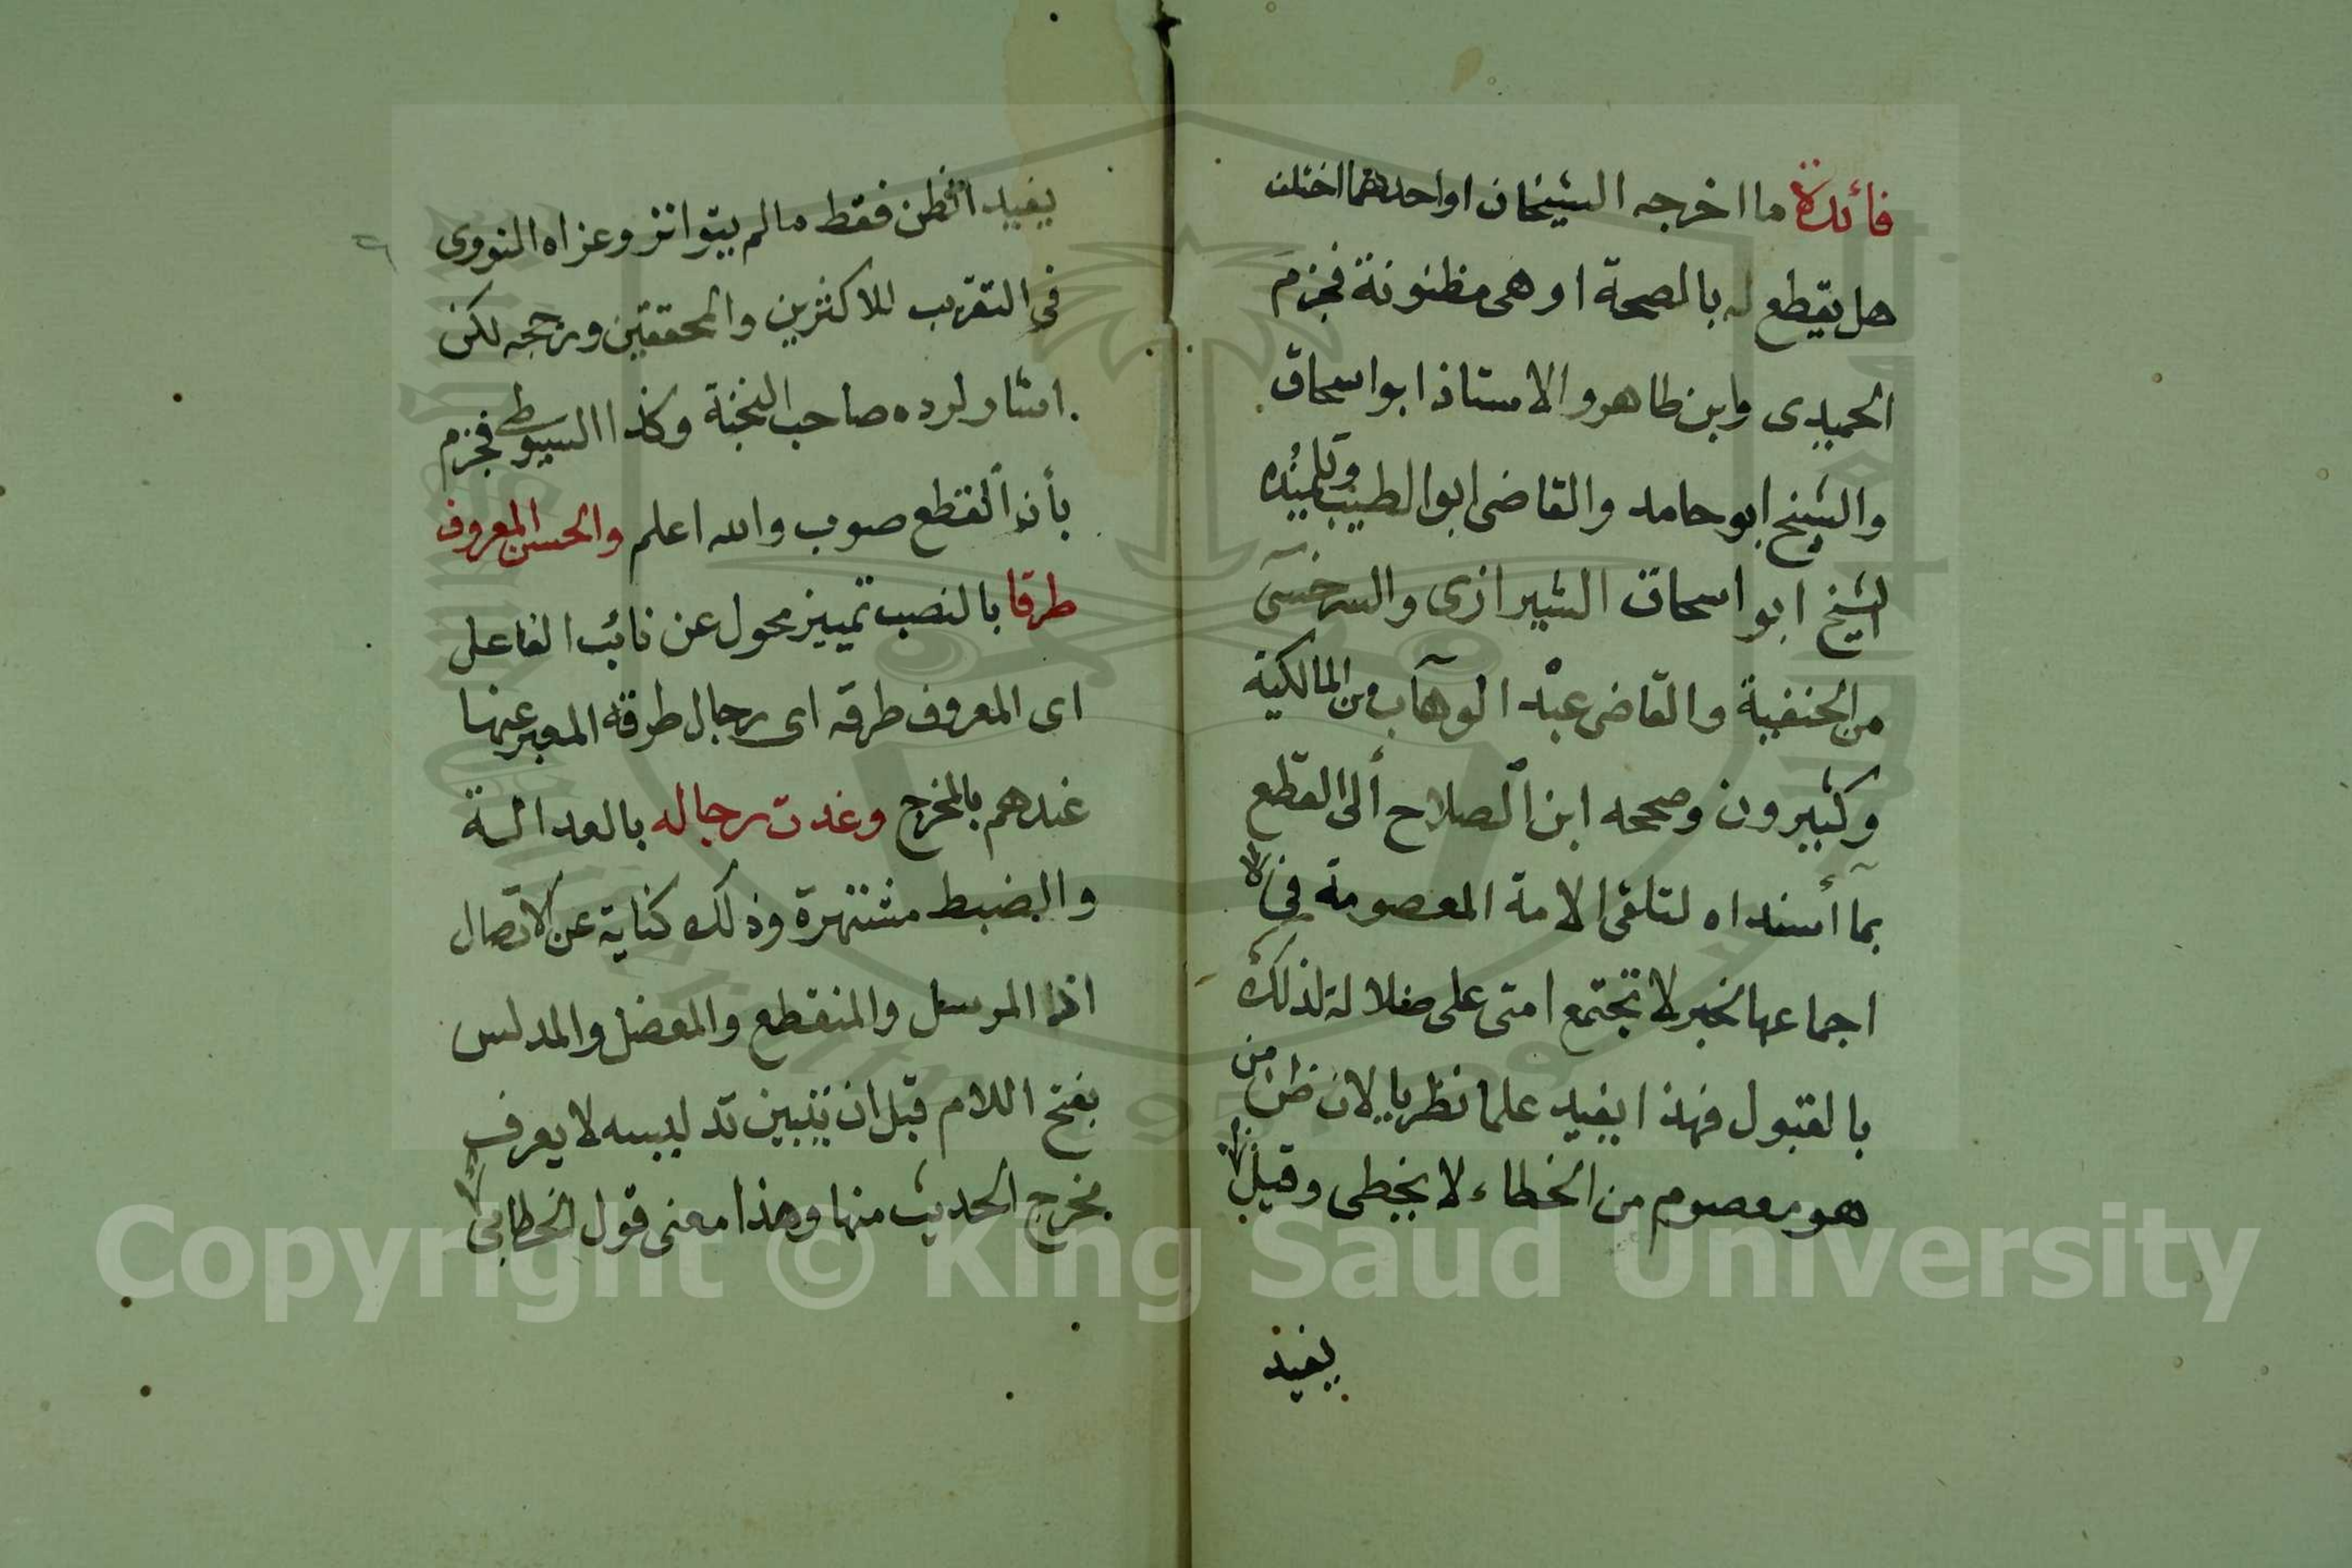 فائدة ما اخرجه الشيخان او احدهما اختلف
هل يقطع له بالصحة او هى مظنونة فجزم
الحميدى وابن طاهر والاستاذ ابو اسحاق
والشيخ ابو حامد والقاضى ابو الطيب وتلميذه
الشيخ ابو اسحاق الشيرازى والسرخسى
من الحنفية والقاضى عبد الوهاب من المالكية
وكثيرون وصححه ابن الصلاح الى القطع
بما أسنداه لتلقى الامة المعصومة فى
اجماعها لخبر لا تجتمع امتى على ضلالة لذلك
بالقبول فهذا يفيد علما نظريا لان ظن من
هو معصوم من الخطاء لا يخطى وقيل
يفيد
يفيد الظن فقط ما لم يتواتر وعزاه النووى
فى التقريب للاكثرين والمحققين ورجحه لكن
اشار لرده صاحب النخبة وكذا السيوطى فجزم
بأن القطع صوب والله اعلم والحسن المعروف
طرقا بالنصب تمييز محول عن نائب الفاعل
اى المعروف طرقه اى رجال طرقه المعبر عنها
عندهم بالمخرج وغدت رجاله بالعدالة
والضبط مشتهرة وذلك كناية عن الاتصال
اذا المرسل والمنقطع والمعضل والمدلس
بفتح اللام قبل ان يتبين تدليسه لا يعرف
مخرج الحديث منها وهذا معنى قول الخطابى
Copyright © King Saud University